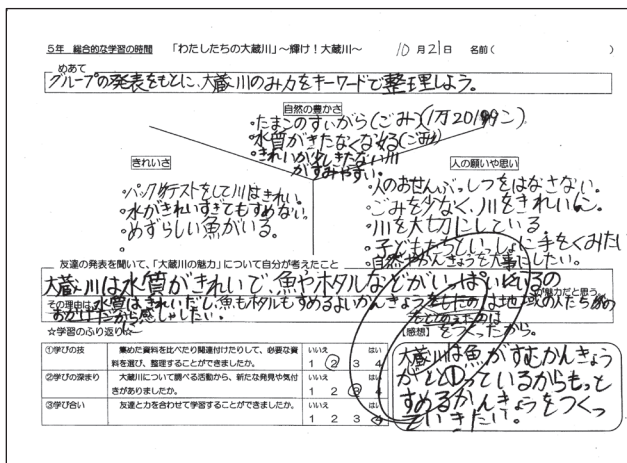 5年 総合的な学習の時間 「わたしたちの大蔵川」～輝け！大蔵川～ 10月21日 名前( )
めあて
グループの発表をもとに、大蔵川のみ力をキーワードで整理しよう。
自然の豊かさ
・たまごのすいがら(ごみ)(1万20199こ)
・水質がきたなくなる(ごみ)
・きれいが少しきたない川
がすみやすい。
きれいさ
・パックテストをして川はきれい。
・水がきれいすぎてもすめない。
・めずらしい魚がいる。
・
人の願いや思い
・人のおせんぶっしつをはなさない。
・ごみを少なく、川をきれいに。
・川を大切にしている。
・子どもたちといっしょに手をくみたい
・自然やかんきょうを大事にしたい。
友達の発表を聞いて、「大蔵川の魅力」について自分が考えたこと
大蔵川は水質がきれいで、魚やホタルなどがいっぱいいるの
が魅力だと思う。
その理由は、水質はきれいだし、魚もホタルもすめるよいかんきょう
は地域の人たちの
おかげだから感しゃしたい。
をつくったから。
☆学習のふり返り☆
①学びの技 集めた資料を比べたり関連付けたりして、必要な資料を選び、整理することができましたか。 いいえ はい 1 2 3 4
②学びの深まり 大蔵川について調べる活動から、新たな発見や気付きがありましたか。 いいえ はい 1 2 3 4
③学び合い 友達と力を合わせて学習することができましたか。 いいえ はい 1 2 3 4
【感想】
大蔵川は魚がすむかんきょう
がととのっているからもっと
すめるかんきょうをつくっ
ていきたい。